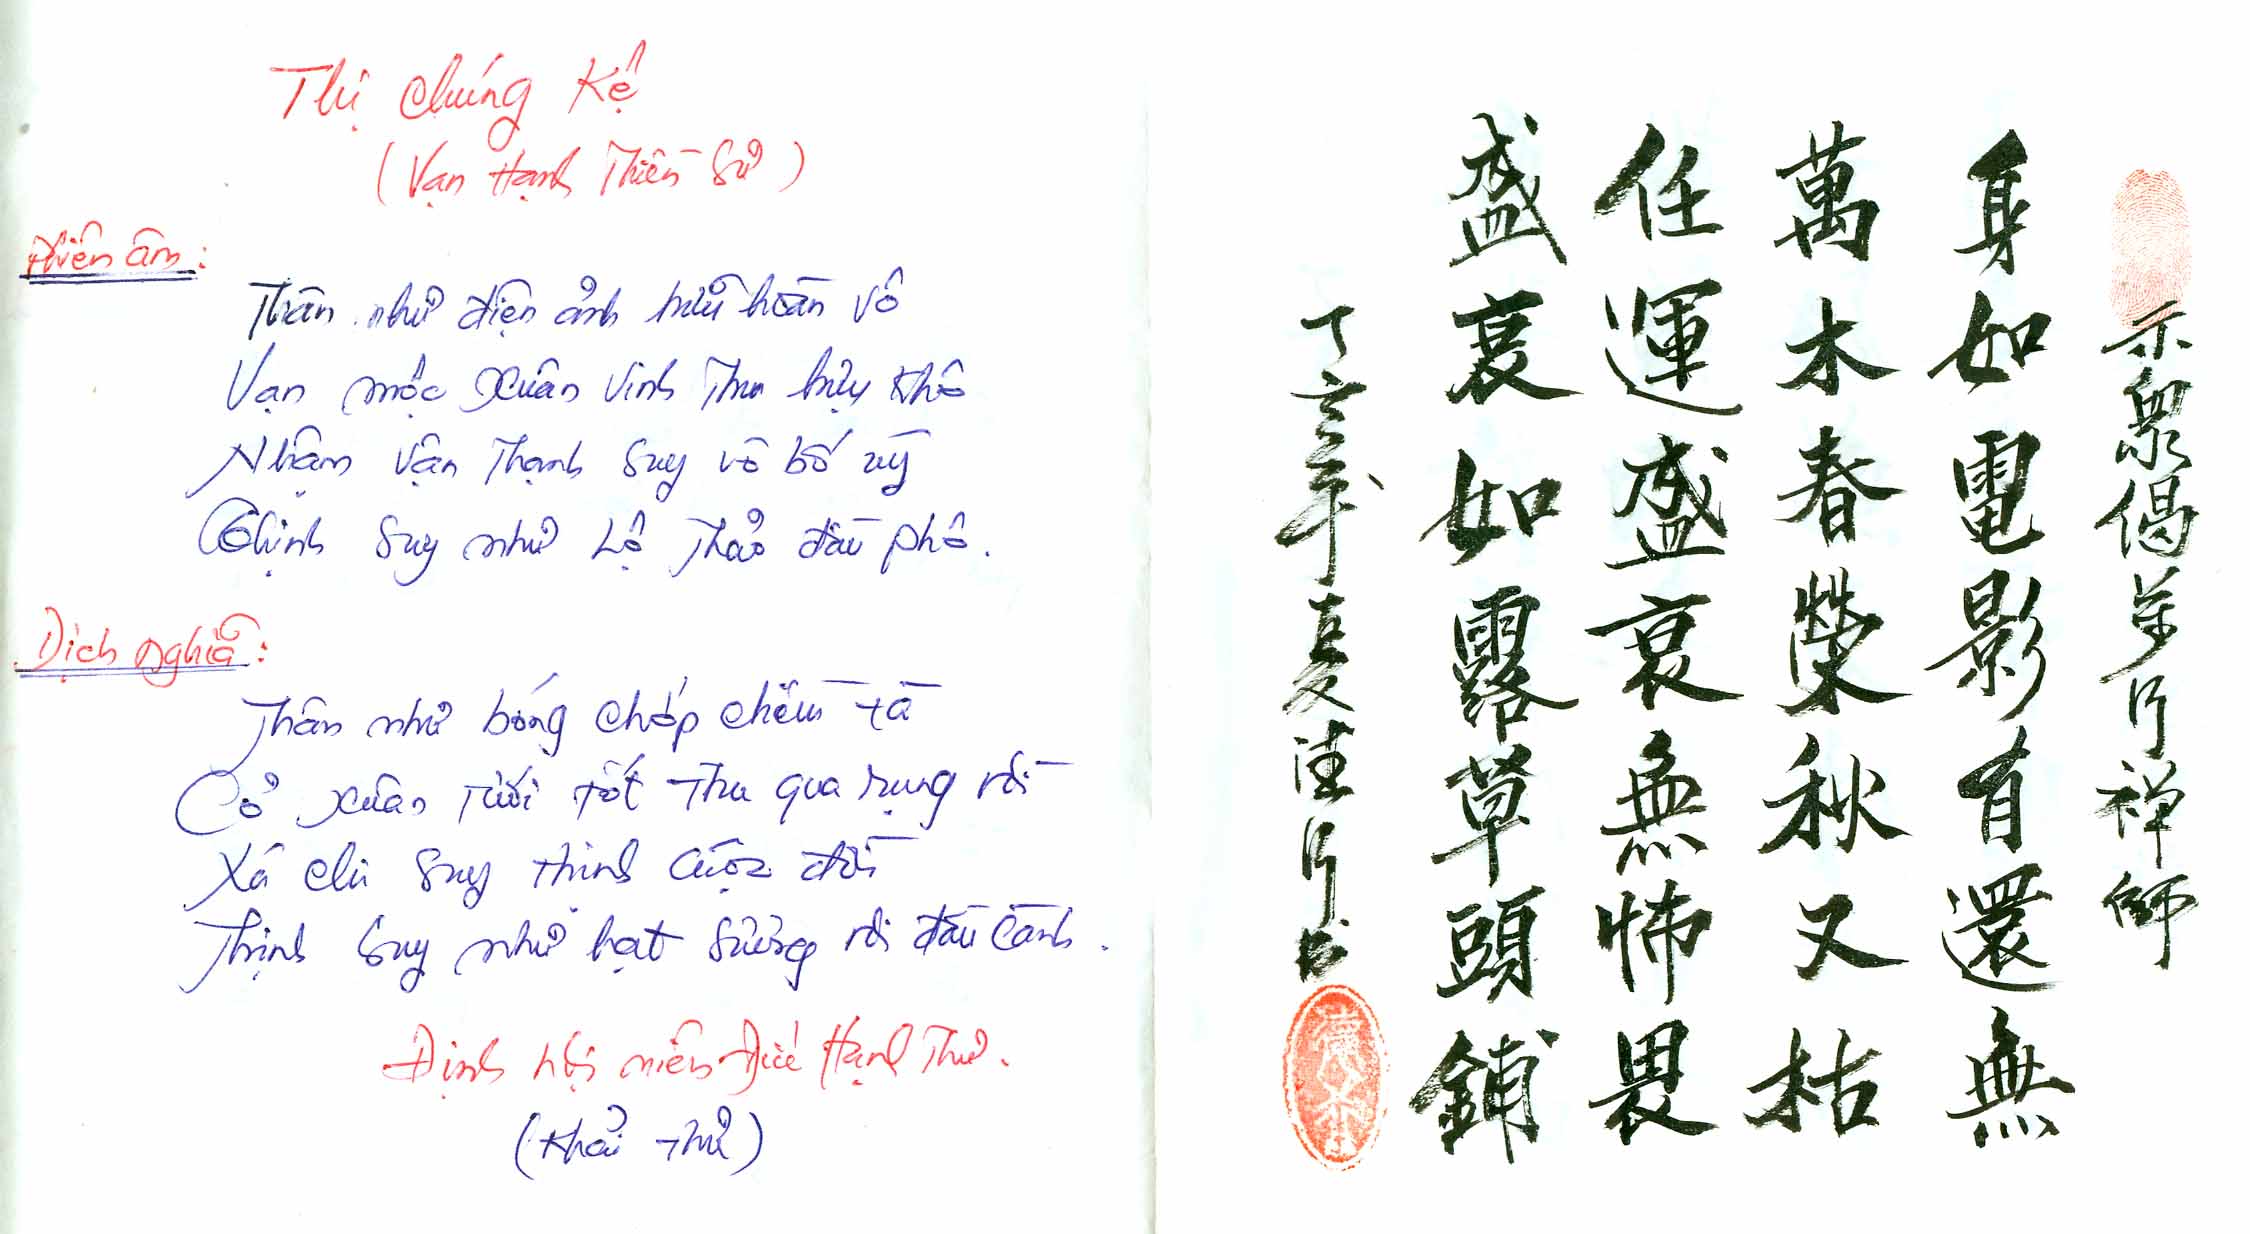 Thị Chúng Kệ
(Vạn Hạnh Thiền Sư)
Phiên âm:
Thân như điện ảnh hữu hoàn vô
Vạn mộc Xuân Vinh Thu hựu Khô
Nhậm Vận Thạnh Suy vô bố úy
Thịnh Suy như Lộ Thảo đầu phô.
Dịch nghĩa:
Thân như bóng chớp chiều tà
Cỏ Xuân Tươi Tốt Thu qua rụng rồi
Xá chi Suy thịnh cuộc đời
Thịnh Suy như hạt Sương rơi đầu Cành.
Đinh Hợi niên Đức Hạnh Thư.
(Khải Thư)
示眾偈萬行禪師
身如電影有還無
萬木春榮秋又枯
任運盛衰無怖畏
盛衰如露草頭鋪
丁亥年夏德行書